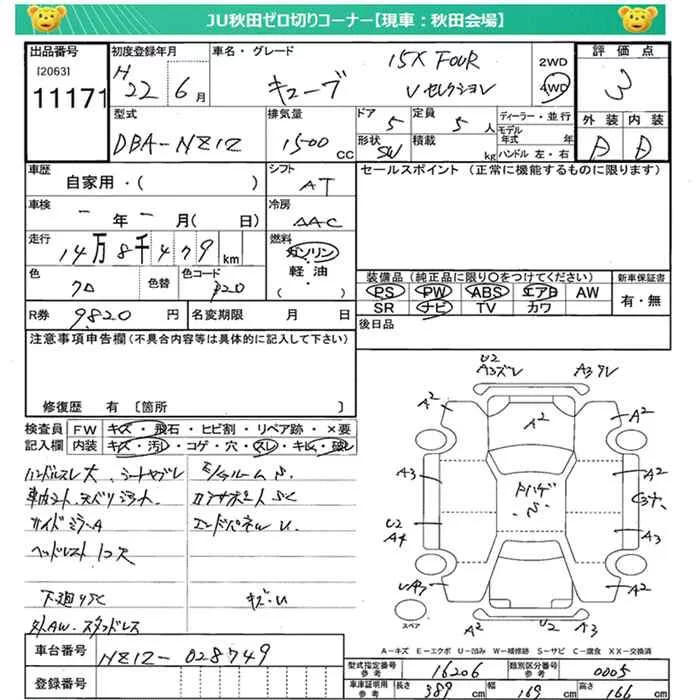 JU秋田ゼロ切りコーナー【現車：秋田会場】
出品番号
[2063]
11171
初度登録年月
H22 6月
車名・グレード
キューブ
15X FOUR
Vセレクション
2WD
4WD
評価点
3
外装 内装
A D
型式
DBA-NZ12
排気量
1500 CC
ドア 5
定員 5人
形状 SW
積載 kg
ディーラー・並行
モデル年式 年
ハンドル 左・右
車歴
自家用・( )
シフト
AT
セールスポイント（正常に機能するものに限ります）
車検
ー年ー月(日)
冷房
AAC
走行
14万8千479km
燃料
ガソリン
軽油・
( )
色
クロ
色替
色コード
装備品（純正品に限り〇をつけてください） 新車保証書
PS PW ABS エアB AW
SR ナビ TV カワ
有・無
R券 9820円
名変期限 月 日
後日品
注意事項申告欄（不具合内容等は具体的に記入して下さい）
修復歴 有〔箇所 〕
検査員記入欄
FW キズ・飛石・ヒビ割・リペア跡・×要
内装 キズ・汚レ・コゲ・穴・スレ・キレ・破レ
ハンドルスレ大、シートヤブレ
サイドミラーA
ヘッドレスト1コ欠
エンドパネルU
下廻りサC
キズ・U
外AW・スタッドレス
U2
A3ズレ
A3ワレ
A2
A2
A2
A3
A2
U2
A4
A3
UA3
A2
A2
U2
A3
スペア
A－キズ E－エクボ U－凹み W－補修跡 S－サビ C－腐食 XX－交換済
車台番号
NZ12-028749
登録番号
型式指定番号 参考
16206
類別区分番号 参考
0005
車体証明用 参考
長さ 389 cm
幅 169 cm
高さ 166 cm